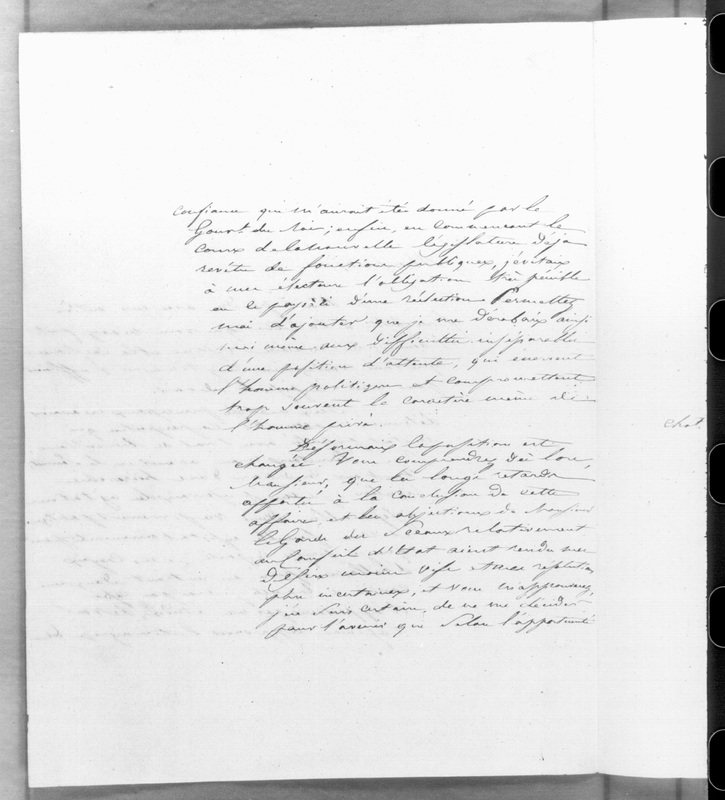 confiance qui m'aurait été donné par le
Gouvt. du Roi; enfin, en commencant le
cours de la nouvelle législature déjà
revêtu de fonctions publiques, j'évitais
à mes électeurs l'obligation très pénible
en le pays d'une réélection. Permettez
moi d'ajouter que je me dérobais ainsi
moi même aux difficultés inséparables
d'une position d'attente, qui énervent
l'homme politique et compromettent
trop souvent le caractère même de
l'homme privé.
Désormais la position est
changée. Vous comprendrez dès lors,
Monsieur, que les longs retards
apportés à la conclusion de cette
affaire, et les objections de Monsieur
le Garde des Sceaux relativement
au Conseil d'Etat aient rendu mes
désirs moins vifs et mes résolutions
plus incertaines, et vous m'approuverez,
j'en suis certain, de ne me décider
pour l'avenir que selon l'opportunité
chat